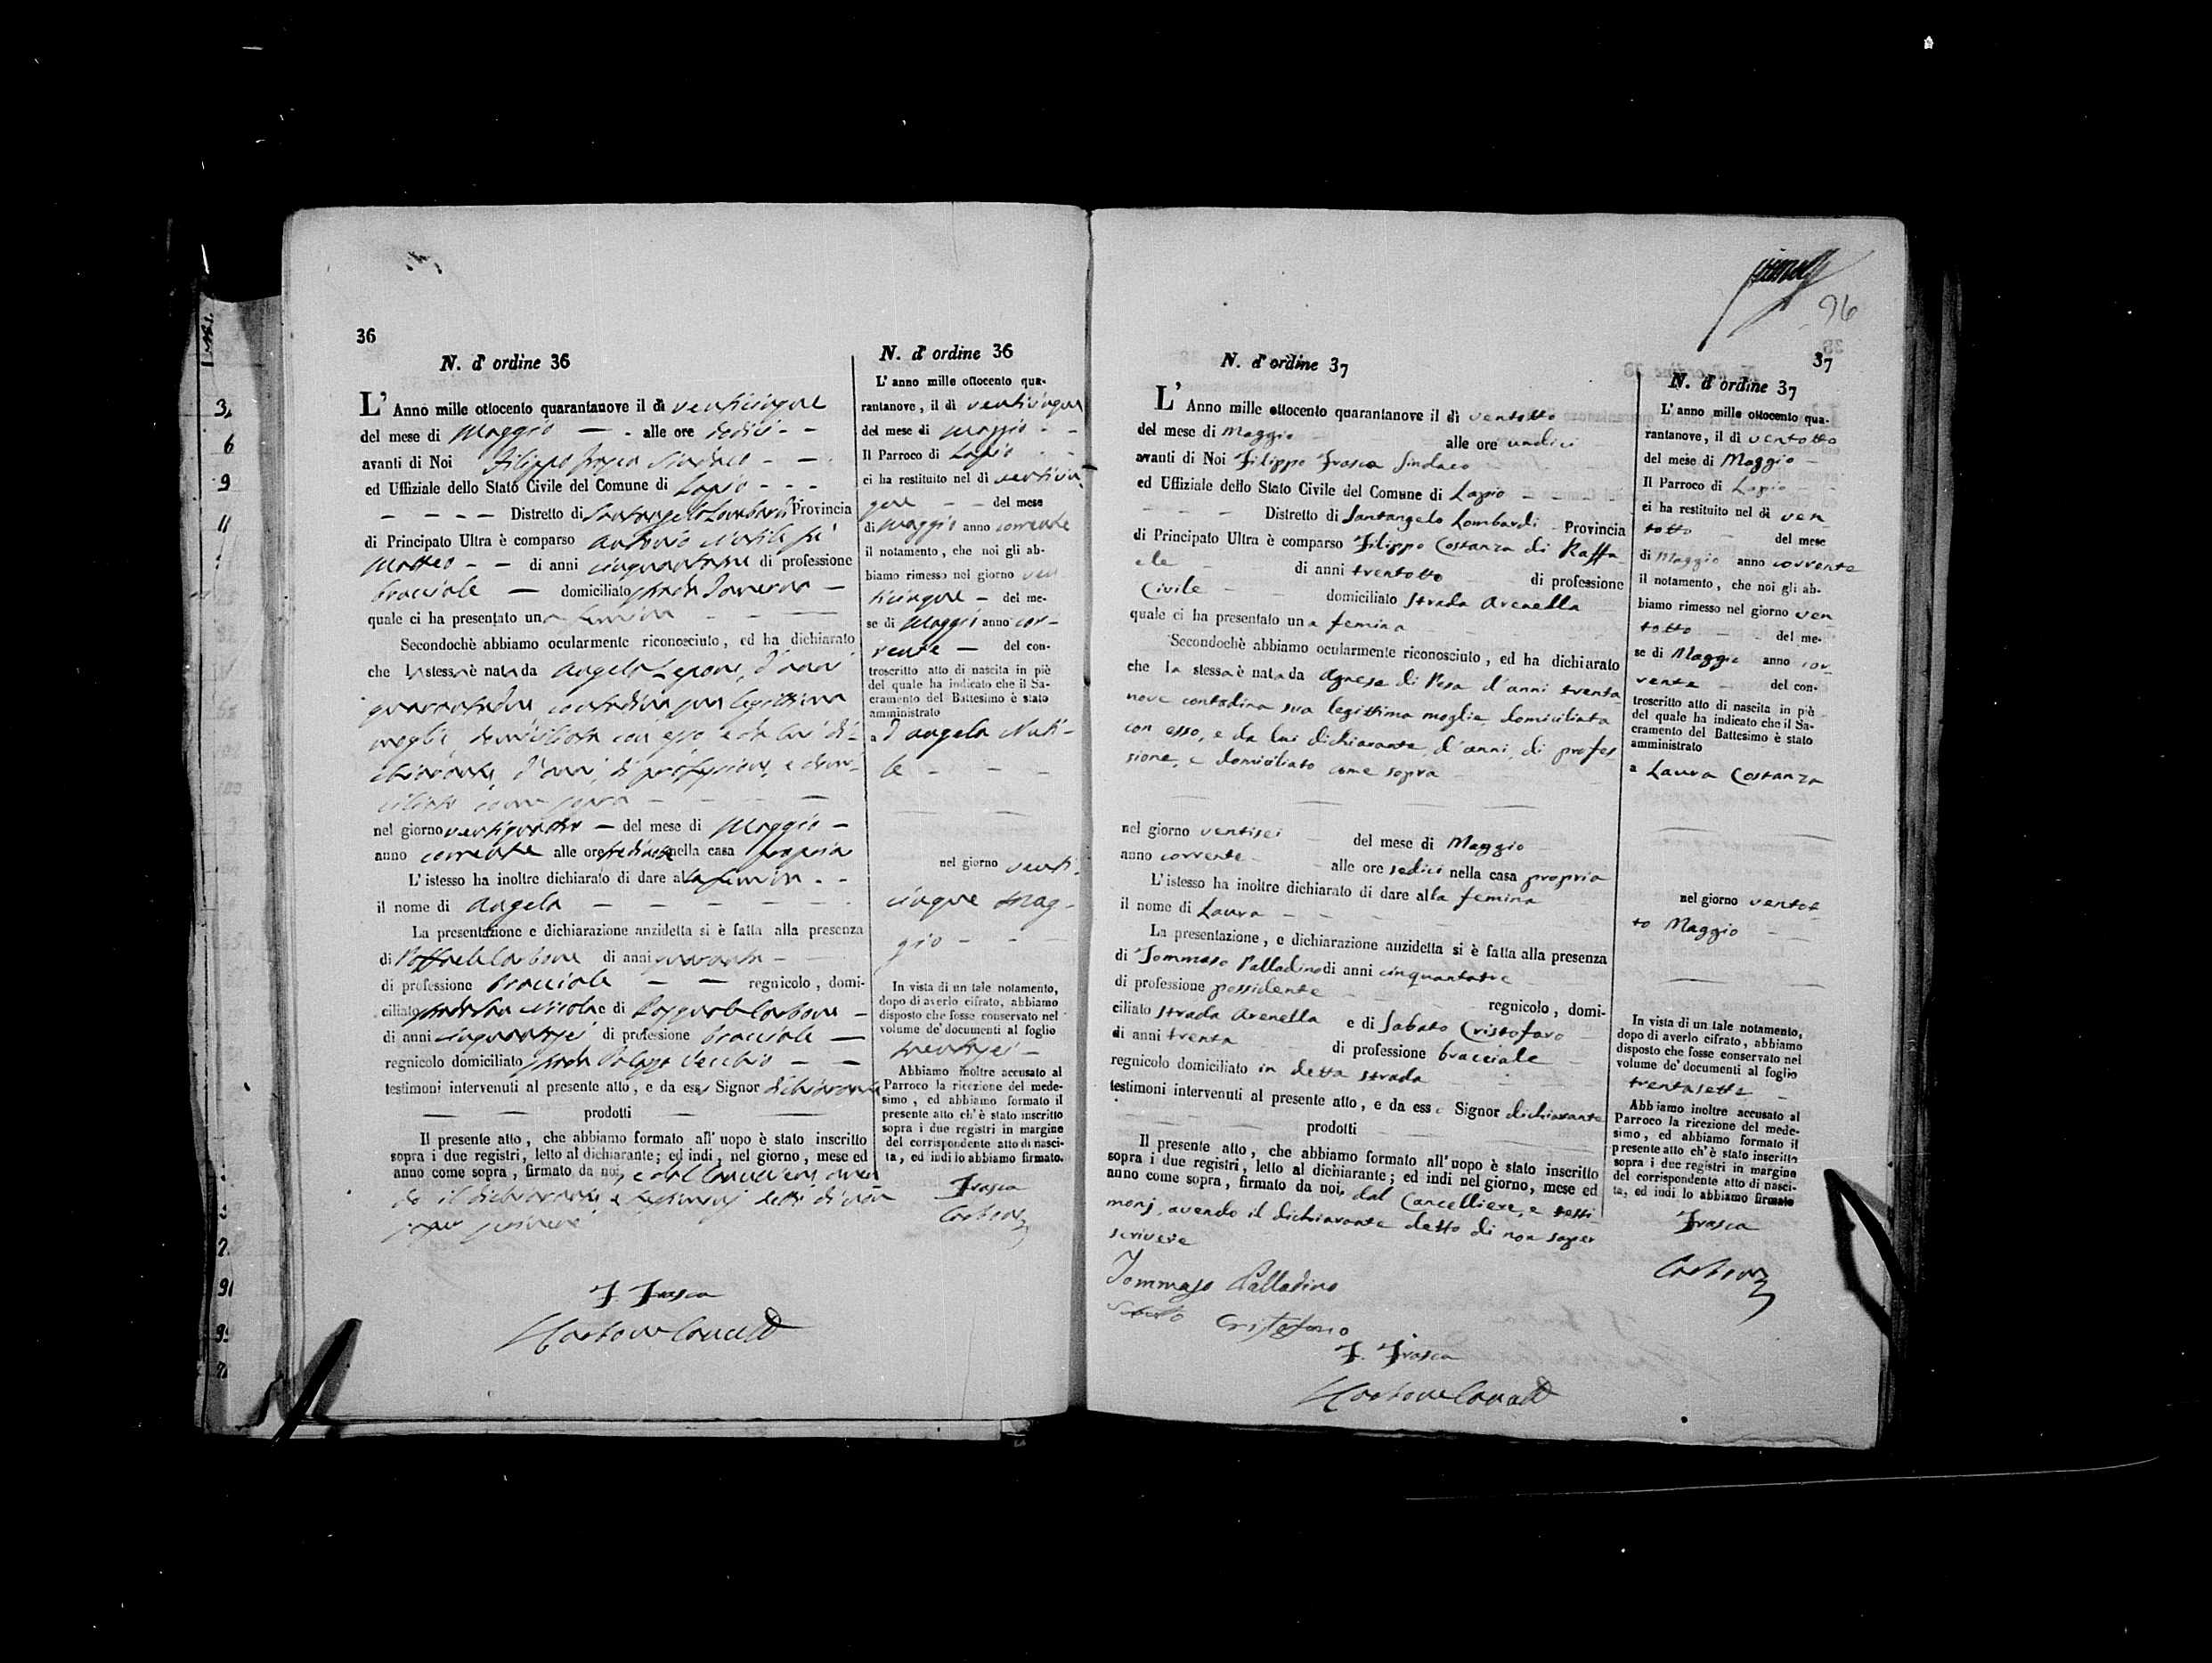 36
N. d' ordine 36
L' Anno mille ottocento quarantanove il dì venticinque
del mese di Maggio — - alle ore dodici - -
avanti di Noi Filippo Frasca Sindaco - - -
ed Uffiziale dello Stato Civile del Comune di Lapio - - -
- - - - Distretto di Santangelo Lombardi Provincia
di Principato Ultra è comparso Antonio Nutile fu
Matteo - - di anni di professione
bracciale — domiciliato strada —
quale ci ha presentato una femina - -
Secondochè abbiamo ocularmente riconosciuto, ed ha dichiarato
che la stessa è nata da Angela Lepore, d'anni
quarantadue contadina sua legittima
moglie, domiciliata con esso, e da lui di-
chiarante, d'anni, di professione, e domi-
ciliato come sopra - - - —
nel giorno ventiquattro — del mese di Maggio —
anno corrente alle ore nella casa propria
L' istesso ha inoltre dichiarato di dare alla femina - -
il nome di Angela — — — — — -
La presentazione e dichiarazione anzidetta si è fatta alla presenza
di Raffaele Carbone di anni quaranta -
di professione bracciale — — regnicolo, domi-
ciliato strada San Nicola e di Pasquale Carbone —
di anni cinquantasei di professione bracciale —
regnicolo domiciliato strada Palazzo Vecchio — —
testimoni intervenuti al presente atto, e da esso Signor dichiarante
— — prodotti — —
Il presente atto, che abbiamo formato all' uopo è stato inscritto
sopra i due registri, letto al dichiarante; ed indi, nel giorno, mese ed
anno come sopra, firmato da noi, e dal Cancelliere, aven
do il dichiarante e testimonj detto di non
saper scrivere
F. Frasca
Carbone
N. d' ordine 36
L' anno mille ottocento qua-
rantanove, il dì venticinque
del mese di Maggio - -
Il Parroco di Lapio - -
ci ha restituito nel dì venticin
que - - del mese
di Maggio anno corrente
il notamento, che noi gli ab-
biamo rimesso nel giorno ven
ticinque — del me-
se di Maggio anno cor-
rente — del con-
troscritto atto di nascita in piè
del quale ha indicato che il Sa-
cramento del Battesimo è stato
amministrato
a D Angela Nuti-
le - - -
nel giorno venti-
cinque Mag-
gio - - -
In vista di un tale notamento,
dopo di averlo cifrato, abbiamo
disposto che fosse conservato nel
volume de' documenti al foglio
trentasei -
Abbiamo inoltre accusato al
Parroco la ricezione del mede-
simo, ed abbiamo formato il
presente atto ch' è stato inscritto
sopra i due registri in margine
del corrispondente atto di nasci-
ta, ed indi lo abbiamo firmato.
Frasca
Carbone
96
37
N. d' ordine 37
L' Anno mille ottocento quarantanove il dì ventotto
del mese di Maggio - alle ore undici
avanti di Noi Filippo Frasca Sindaco
ed Uffiziale dello Stato Civile del Comune di Lapio -
- - - Distretto di Santangelo Lombardi - Provincia
di Principato Ultra è comparso Filippo Costanza di Raffa-
ele - di anni trentotto - di professione
Civile - - domiciliato strada Arenella
quale ci ha presentato una femina -
Secondochè abbiamo ocularmente riconosciuto, ed ha dichiarato
che la stessa è nata da Agnese di Pesa d'anni trenta
nove contadina sua legittima moglie, domiciliata
con esso, e da lui dichiarante, d'anni, di profes
sione, e domiciliato come sopra -
nel giorno ventisei - del mese di Maggio -
anno corrente - - alle ore sedici nella casa propria
L' istesso ha inoltre dichiarato di dare alla femina
il nome di Laura - - -
La presentazione, e dichiarazione anzidetta si è fatta alla presenza
di Tommaso Palladino di anni cinquantatre
di professione possidente - regnicolo, domi-
ciliato strada Arenella e di Sabato Cristofaro -
di anni trenta - di professione bracciale -
regnicolo domiciliato in detta strada -
testimoni intervenuti al presente atto, e da esso Signor dichiarante
prodotti
Il presente atto, che abbiamo formato all' uopo è stato inscritto
sopra i due registri, letto al dichiarante; ed indi nel giorno, mese ed
anno come sopra, firmato da noi, dal Cancelliere, e testi-
monj, avendo il dichiarante detto di non saper
scrivere
Tommaso Palladino
Sabato Cristofaro
F. Frasca
Carbone
N. d' ordine 37
L' anno mille ottocento qua-
rantanove, il dì ventotto
del mese di Maggio -
Il Parroco di Lapio - -
ci ha restituito nel dì ven
totto - del mese
di Maggio anno corrente
il notamento, che noi gli ab-
biamo rimesso nel giorno ven
totto - - del me-
se di Maggio anno cor
rente - del con-
troscritto atto di nascita in piè
del quale ha indicato che il Sa-
cramento del Battesimo è stato
amministrato
a Laura Costanza
nel giorno ventot
to Maggio -
In vista di un tale notamento,
dopo di averlo cifrato, abbiamo
disposto che fosse conservato nel
volume de' documenti al foglio
trentasette -
Abbiamo inoltre accusato al
Parroco la ricezione del mede-
simo, ed abbiamo formato il
presente atto ch' è stato inscritto
sopra i due registri in margine
del corrispondente atto di nasci-
ta, ed indi lo abbiamo firmato
Frasca
Carbone